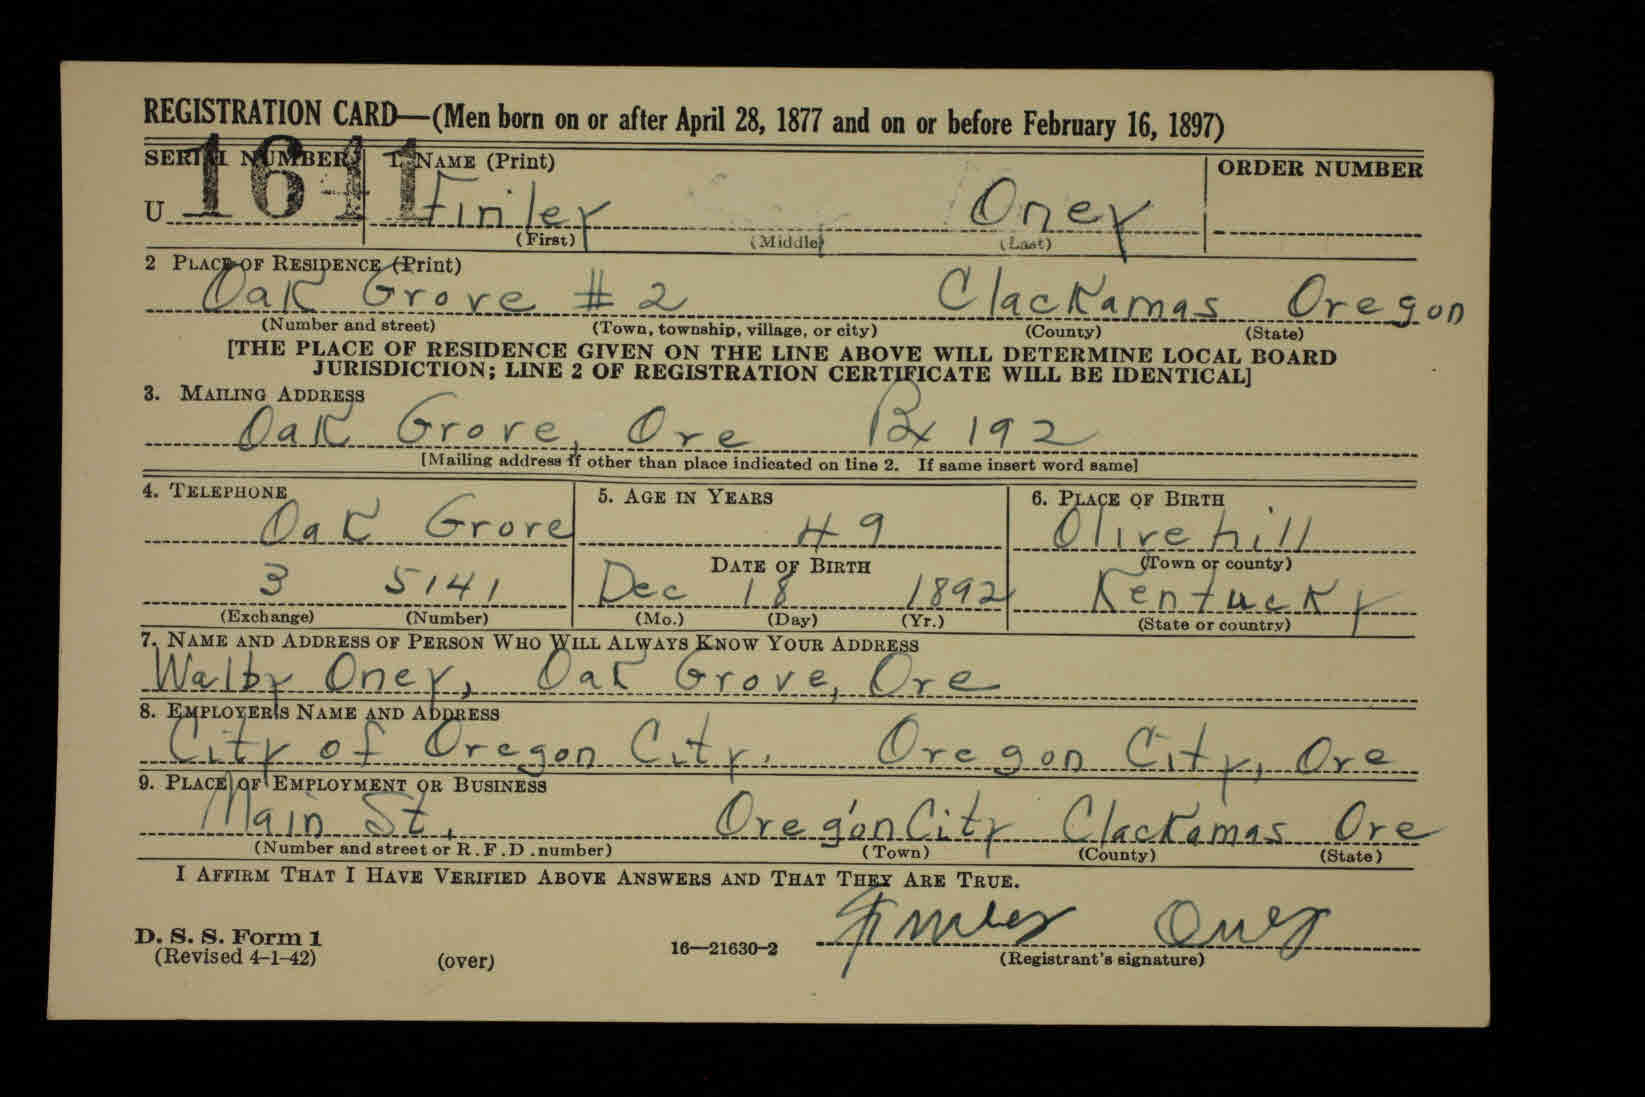 REGISTRATION CARD—(Men born on or after April 28, 1877 and on or before February 16, 1897)
SERIAL NUMBER 1. NAME (Print) ORDER NUMBER
U 1611 Finley Oney
(First) (Middle) (Last)
2 PLACE OF RESIDENCE (Print)
Oak Grove # 2 Clackamas Oregon
(Number and street) (Town, township, village, or city) (County) (State)
[THE PLACE OF RESIDENCE GIVEN ON THE LINE ABOVE WILL DETERMINE LOCAL BOARD
JURISDICTION; LINE 2 OF REGISTRATION CERTIFICATE WILL BE IDENTICAL]
3. MAILING ADDRESS
Oak Grove, Ore Bx 192
[Mailing address if other than place indicated on line 2. If same insert word same]
4. TELEPHONE 5. AGE IN YEARS 6. PLACE OF BIRTH
Oak Grove 49 Olivehill
DATE OF BIRTH (Town or county)
3 5141 Dec 18 1892 Kentucky
(Exchange) (Number) (Mo.) (Day) (Yr.) (State or country)
7. NAME AND ADDRESS OF PERSON WHO WILL ALWAYS KNOW YOUR ADDRESS
Walby Oney, Oak Grove, Ore
8. EMPLOYER'S NAME AND ADDRESS
City of Oregon City. Oregon City, Ore
9. PLACE OF EMPLOYMENT OR BUSINESS
Main St. Oregon City Clackamas Ore
(Number and street or R.F.D. number) (Town) (County) (State)
I AFFIRM THAT I HAVE VERIFIED ABOVE ANSWERS AND THAT THEY ARE TRUE.
Finley Oney
D. S. S. Form 1
(Revised 4-1-42) (over) 16—21630-2 (Registrant's signature)